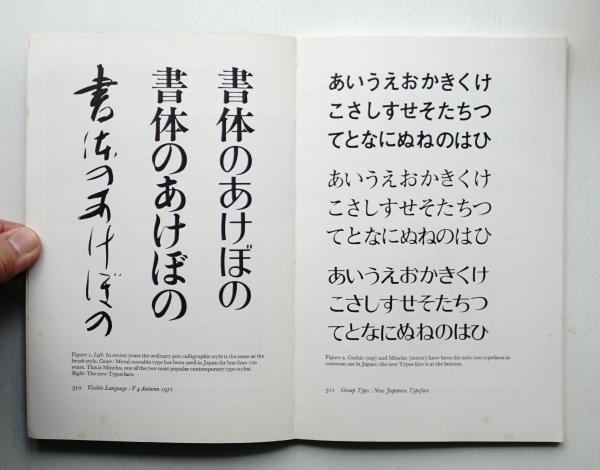 書体のあけぼの
書体のあけぼの
書体のあけぼの
Figure 1. Left: In recent years the ordinary pen calligraphic style is the same as the
brush style. Center: Metal movable type has been used in Japan for less than 100
years. This is Mincho, one of the two most popular contemporary type styles.
Right: The new Typos face.
310 Visible Language : V 4 Autumn 1971
あいうえおかきくけ
こさしすせそたちつ
てとなにぬねのはひ
あいうえおかきくけ
こさしすせそたちつ
てとなにぬねのはひ
あいうえおかきくけ
こさしすせそたちつ
てとなにぬねのはひ
Figure 2. Gothic (top) and Mincho (center) have been the only two typefaces in
common use in Japan; the new Typos face is at the bottom.
311 Group Typo : New Japanese Typeface